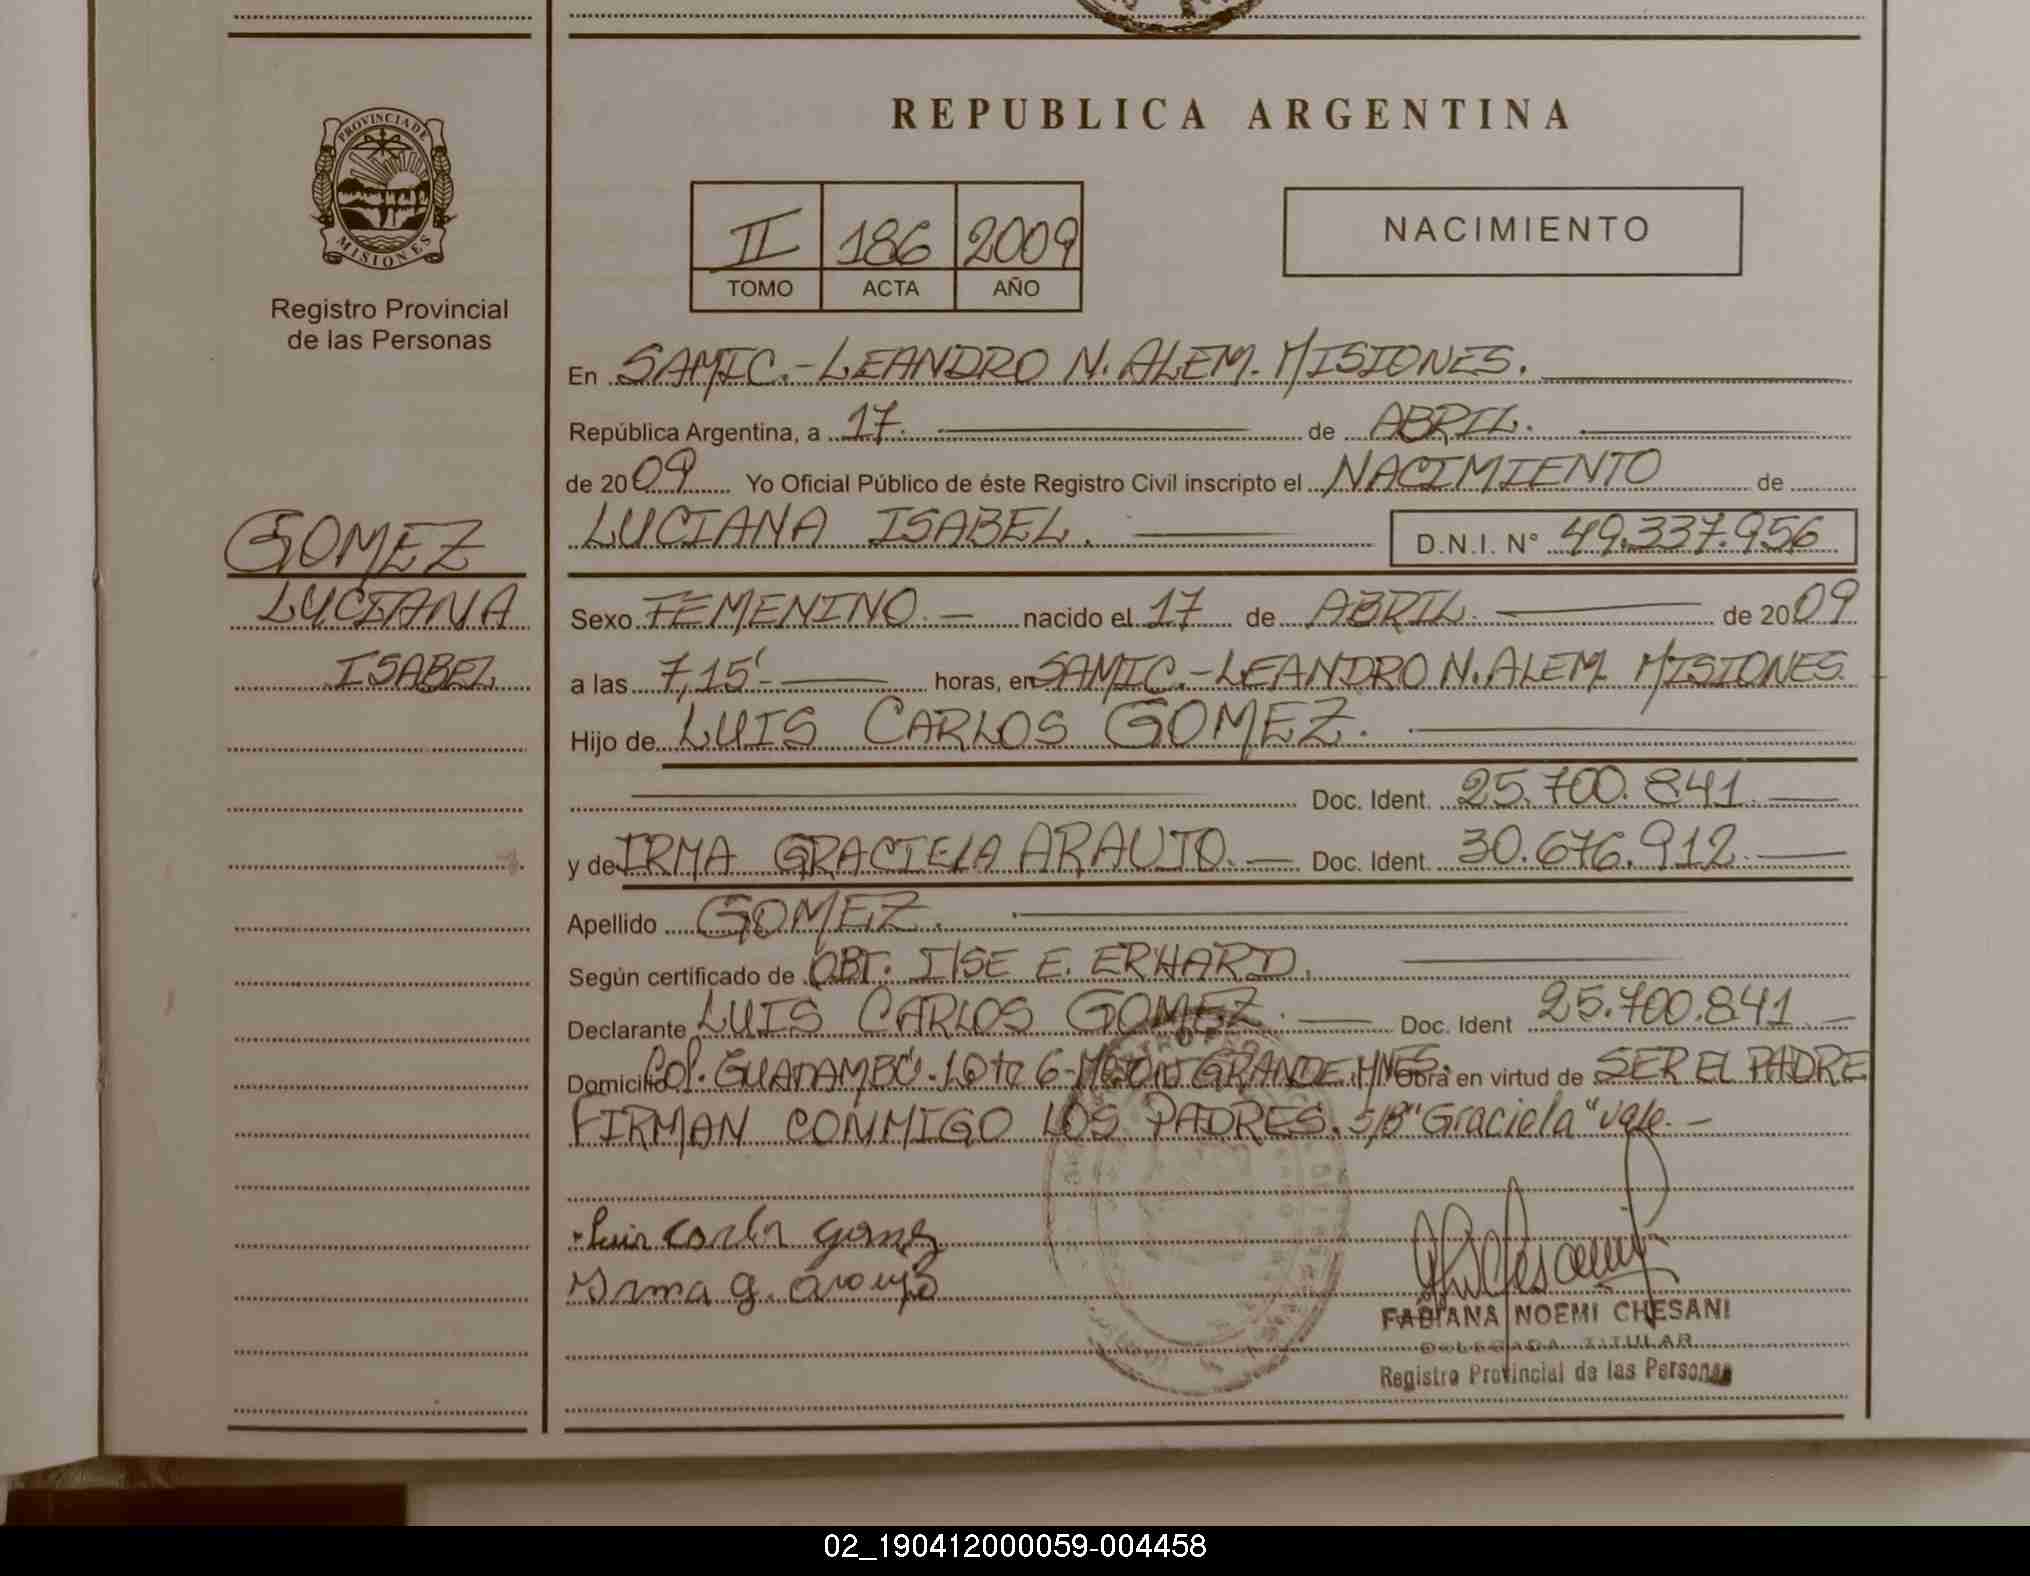 REPUBLICA ARGENTINA
PROVINCIA DE
MISIONES
Registro Provincial
de las Personas
II 186 2009
TOMO ACTA AÑO
NACIMIENTO
En SAMIC.-LEANDRO N. ALEM. MISIONES.
República Argentina, a 17. de ABRIL.
de 2009 Yo Oficial Público de éste Registro Civil inscripto el NACIMIENTO de
LUCIANA ISABEL. D.N.I. N° 49.337.956
GOMEZ
LUCIANA
ISABEL
Sexo FEMENINO.- nacido el 17 de ABRIL. de 2009
a las 7,15'- horas, en SAMIC.-LEANDRO N. ALEM. MISIONES.
Hijo de LUIS CARLOS GOMEZ.
Doc. Ident. 25.700.841.
y de IRMA GRACIELA ARAUJO. Doc. Ident. 30.676.912.
Apellido GOMEZ.
Según certificado de OBT. ILSE E. ERHARD.
Declarante LUIS CARLOS GOMEZ. Doc. Ident 25.700.841.
Domicilio Col. GUATAMBÚ. 6- GRANDE MNES. Obra en virtud de SER EL PADRE
FIRMAN CONMIGO LOS PADRES. S/B "Graciela" vale.-
Luis Carlos Gomez
Irma G. Araujo
FABIANA NOEMI CHESANI
DELEGADA TITULAR
Registro Provincial de las Personas
02_190412000059-004458